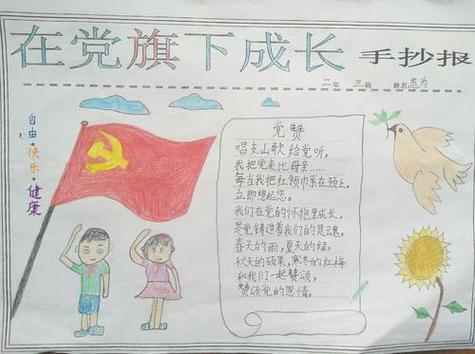 在党旗下成长 手抄报
二年 三班 姓名
自由·快乐·健康
党赞
唱支山歌给党听,
我把党来比母亲……
每当我把红领巾系在颈上,
立即想起您。
我们在党的怀抱里成长,
是党铸造着我们的灵魂,
春天的雨,夏天的绿,
秋天的硕果,寒冬的红梅
和我们一起赞颂,
赞颂党的恩情。